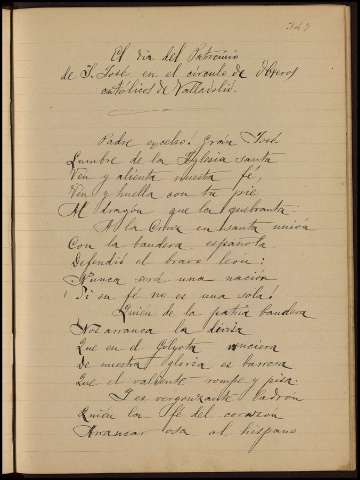 343
El dia del Patrocinio
de S. José en el circulo de Obreros
católicos de Valladolid.
Padre excelso! Gran José
Lumbre de la Iglesia santa
Ven y alienta nuestra fé,
Ven y huella con tu pie
Al dragon que la quebranta.
A la Cruz en santa union
Con la bandera española
Defendió el bravo leon:
Nunca será una nación
Si su fé no es una sola!
Quien de la patria bandera
Nos arranca la divisa
Que en el Gólgota naciera
De nuestra Iglesia es barrera
Que el valiente rompe y pisa.
Y es vergonzante ladrón
Quien la fé del corazon
Arrancar osa al hispano